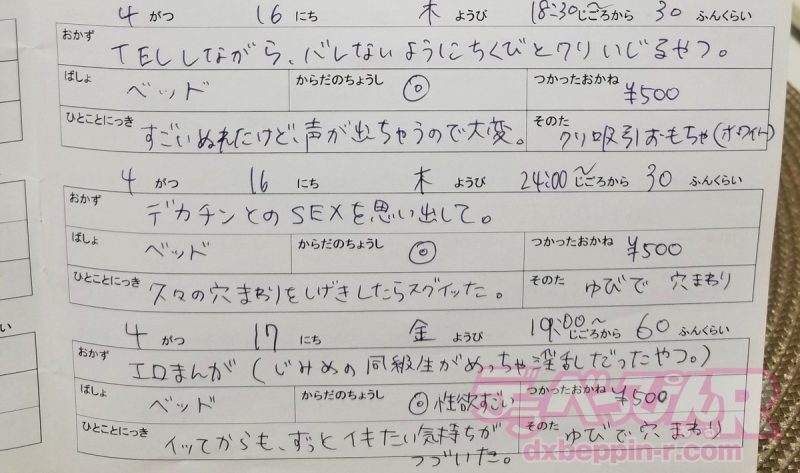 4 がつ 16 にち 木 ようび 18:30〜じごろから 30 ふんくらい
おかず
TELしながら、バレないようにちくびとクリいじるやつ。
ばしょ からだのちょうし つかったおかね
ベッド ◎ ¥500
ひとことにっき そのた
すごいぬれたけど、声が出ちゃうので大変。 クリ吸引おもちゃ(ホワイト)
4 がつ 16 にち 木 ようび 24:00〜じごろから 30 ふんくらい
おかず
デカチンとのSEXを思い出して。
ばしょ からだのちょうし つかったおかね
ベッド ◎ ¥500
ひとことにっき そのた
久々の穴まわりをしげきしたらスグイッた。 ゆびで 穴まわり
4 がつ 17 にち 金 ようび 19:00〜じごろから 60 ふんくらい
おかず
エロまんが(じみめの同級生がめっちゃ淫乱だったやつ。)
ばしょ からだのちょうし つかったおかね
ベッド ◎ 性欲すごい ¥500
ひとことにっき そのた
イッてからも、ずっとイキたい気持ちが ゆびで 穴 まわり
つづいた。
デラべっぴんR
dxbeppin-r.com